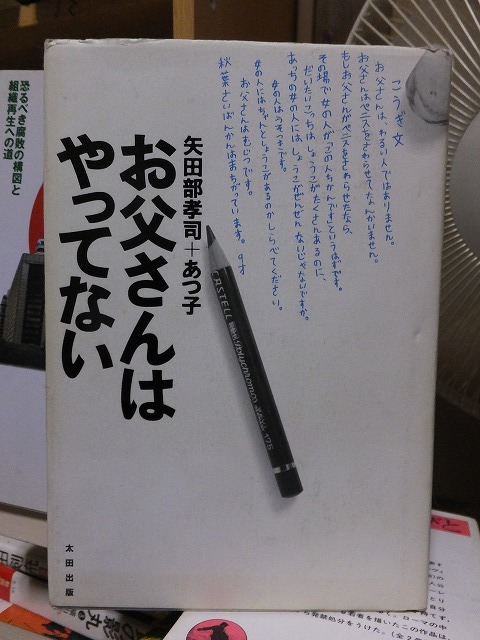 こうぎ文
お父さんは、わるい人ではありません。
お父さんはペニスをさわらせてなんかいません。
もしお父さんがペニスをさわらせたなら、
その場で女の人が「この人ちかんです」というはずです。
だいたいこっちは、しょうこがたくさんあるのに、
あっちの女の人には、しょうこがぜんぜんないじゃないですか。
女の人はうそつきです。
女の人にはちゃんとしょうこがあるのかしらべてください。
お父さんはむじつです。
秋葉さいばんかんはまちがっています。 9才
矢田部孝司+あつ子
お父さんは
やってない
CASTELL
太田出版
恐るべき腐敗の構図と
組織再生への道